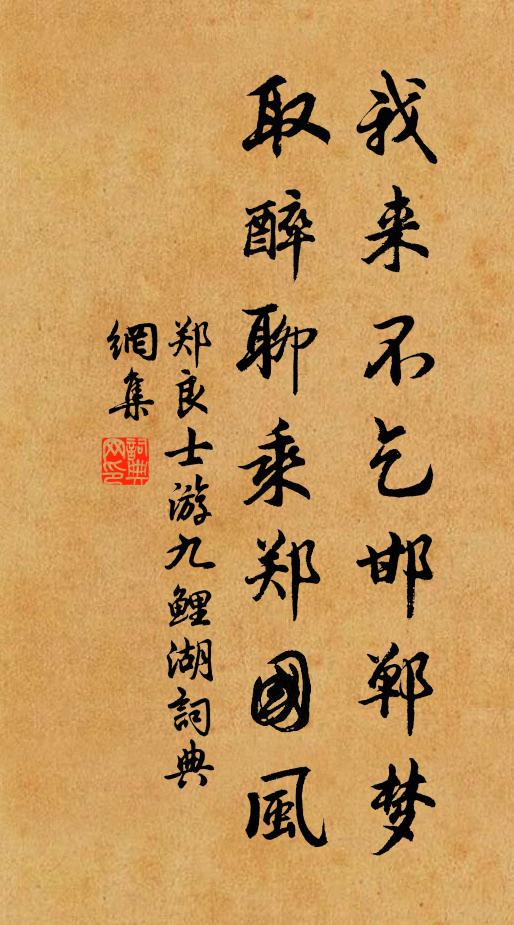 我来不乞邯郸梦
取醉聊乘郑國風
郑良士游九鲤湖詞典
網集
詞典
网印